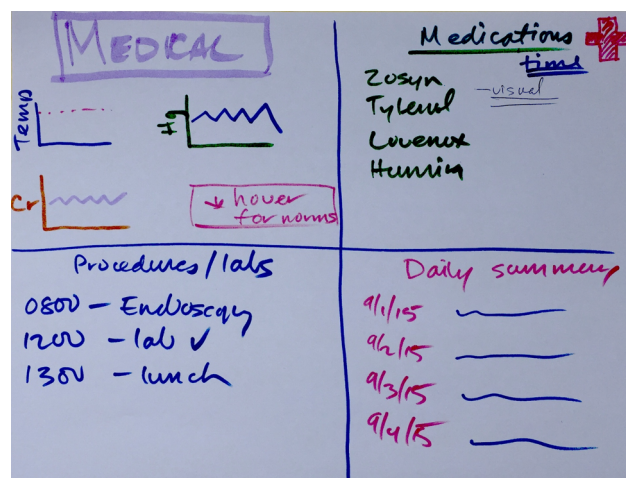 MEDICAL
Temp
H
Cr
↓ hover
for norms
Medications
time
Zosyn
Tylenol
Lovenox
Humira
- visual
Procedures/labs
0800 - Endoscopy
1200 - lab ✓
1300 - lunch
Daily summery
9/1/15
9/2/15
9/3/15
9/4/15